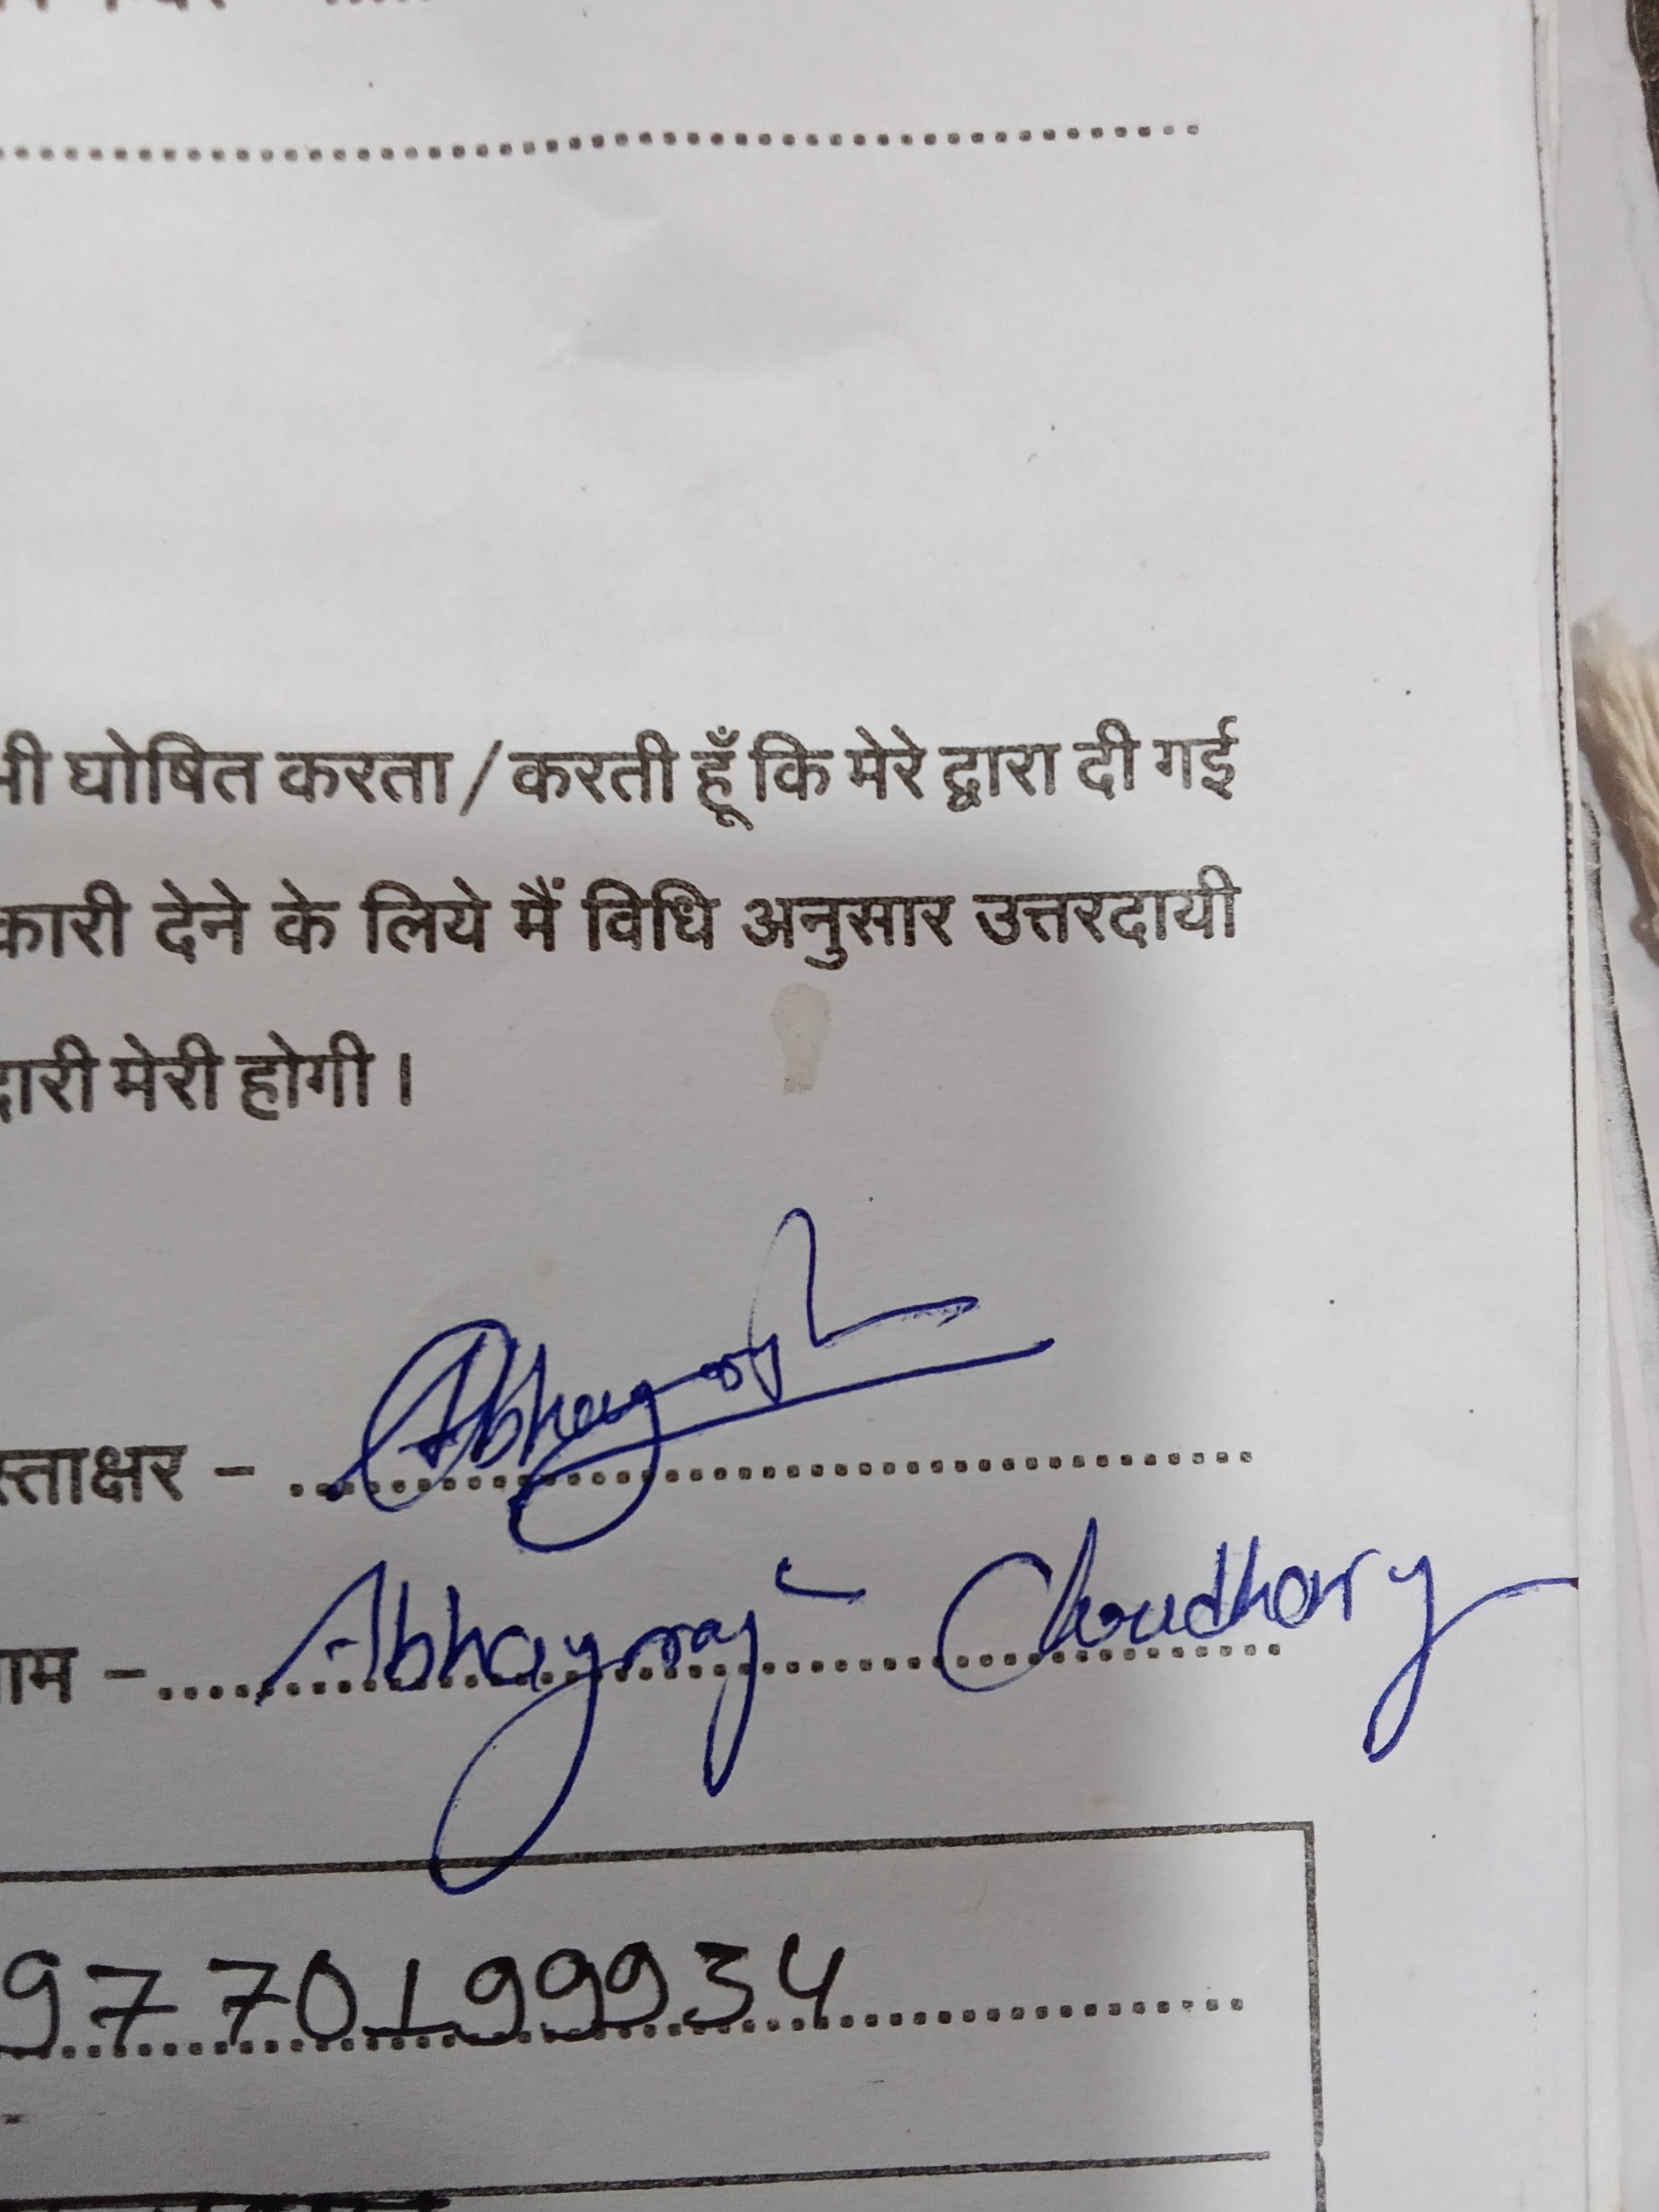 भी घोषित करता / करती हूँ कि मेरे द्वारा दी गई
कारी देने के लिये मैं विधि अनुसार उत्तरदायी
दारी मेरी होगी।
स्ताक्षर - Abhayraj
नाम - Abhayraj Choudhary
9770199934